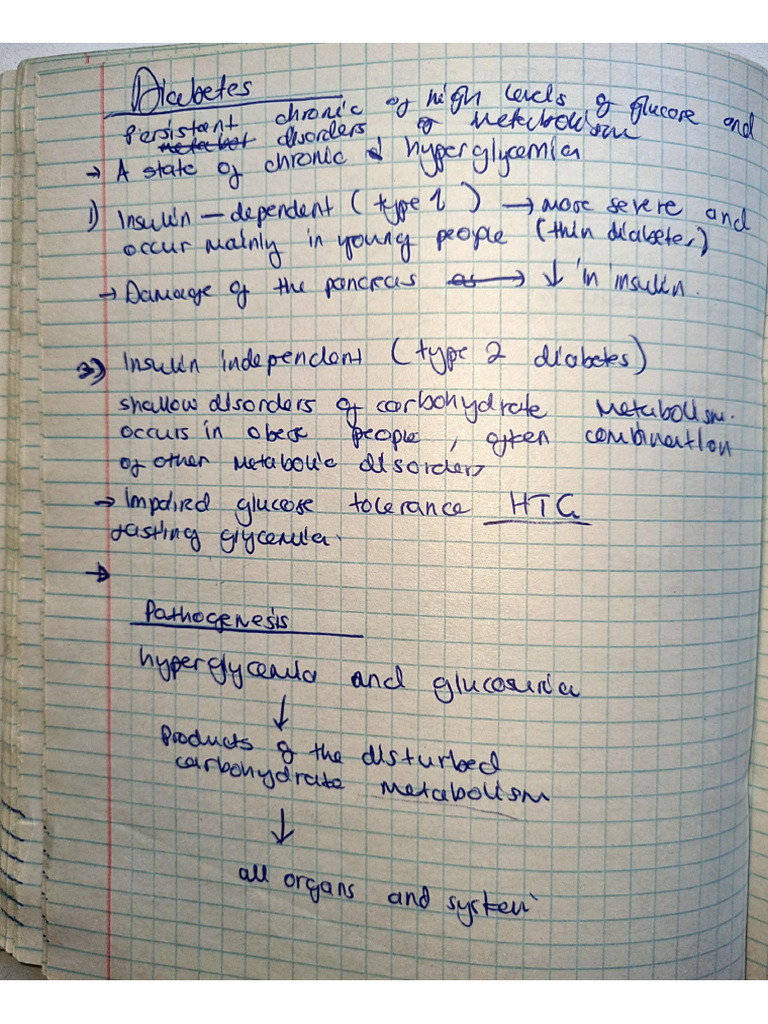 Diabetes
Persistent chronic of high levels of glucose and
metabol disorders of metabolism
→ A state of chronic hyperglycemia
1) Insulin - dependent (type 1) → more severe and
occur mainly in young people (thin diabetes)
→ Damage of the pancreas as → ↓ in insulin.
2) Insulin independent (type 2 diabetes)
shallow disorders of carbohydrate metabolism.
occurs in obese people, often combination
of other metabolic disorders
→ Impaired glucose tolerance HTG
fasting glycemia.
→
Pathogenesis
hyperglycemia and glucosuria
↓
Products of the disturbed
carbohydrate metabolism
↓
all organs and system